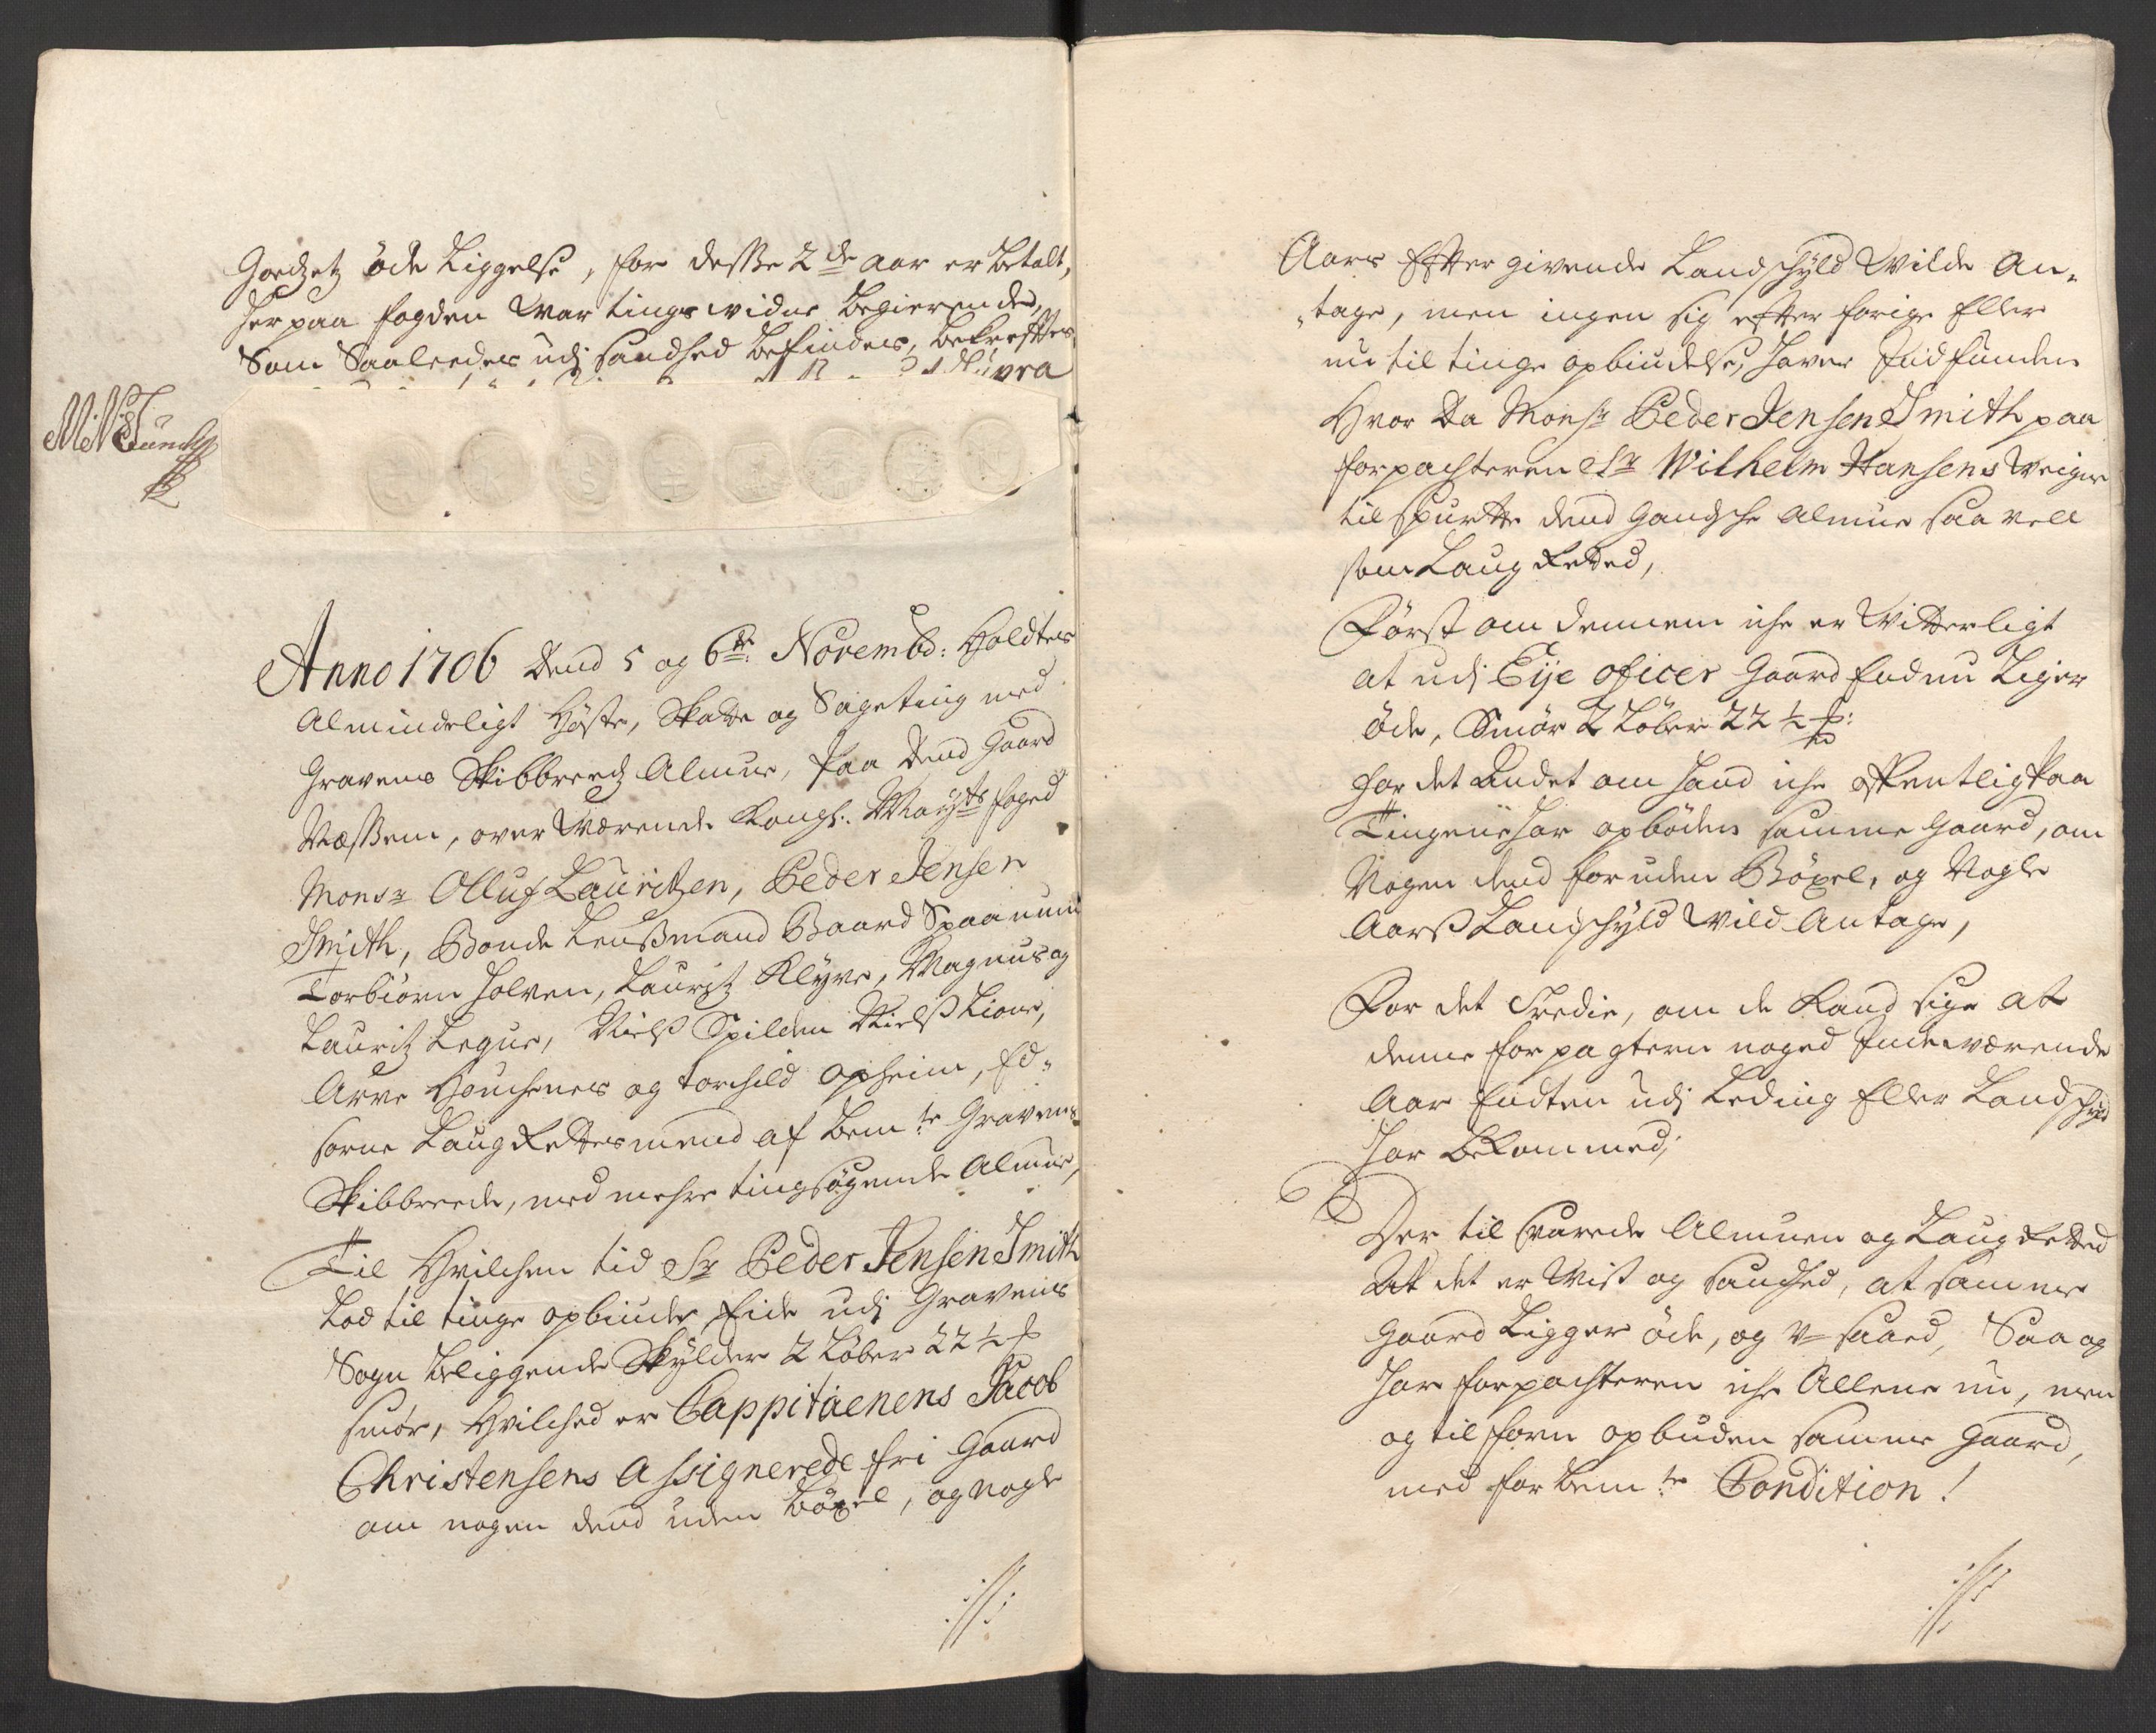 Godzetz öde Liggelse, for desse 2de aar er betalt,
her paa fogden war tings widne begierendes,
Som Saaledes udj sandhed befindes, bekreftes
Anno 1706 dend 5 og 6te Novembr: Holdtes
Almindeligt Höste, Skatte og Sageting med
Gravens Skibbreedz Almue, paa dend Gaard
Næssem, over wærende Kongl: Mayts foged
Monsr Olluf Lauritzen, Peder Jensen
Smith, Bonde Lensmand Baard Spaanum
Torbiörn Holven, Lauritz Klyve, Magnus og
Lauritz Legue, Niels Spilden Niels Lione,
Arve og torchild Opheim, Ed-
sorne Laug Rettesmend af bemte Gravens
Skibbreede, med mehre tingsøgende Almue,
Til Hvilchen tid Sr Peder Jensen Smith
Lod til tinge opbiude Eide udj Gravens
Sogn beliggende Skylder 2 Løber 22 1/2 ℔
Smör, Hvilched er Cappitaenens Jacob
Christensens Assignerede fri Gaard
om nogen dend uden böxel, og nogle
Aars Efter givende Landschyld wilde an-
tage, men ingen sig efter forige Eller
nu til tinge opbiudelse, haver Indfunden
Hvor da Monsr Peder Jensen Smith paa
forpachteren Sr Wilhelm Hansens weigne
tilspurte dend gandsche almue saa vell
som Laug Retted,
Först om dennem iche er witterligt
at udj Eije oficer Gaard Endnu Liger
öde, Smör 2 Löber 22 1/2 ℔:
for det Andet om hand iche offentlig paa
Tingene har opböden samme gaard, om
Nogen dend foruden Böxel, og Nogle
Aars Landschyld wild Antage,
For det Tredie, om de kand sige at
denne forpagtern noged Indewærende
Aar Endten udj Leding Eller Landschyld
har bekommed;
Der til svarede Almuen og Laug Retted
At det er wist og sandhed, at samme
gaard Ligger öde, og saaed, Saa og
har forpachteren iche Allene nu, men
og tilforn opbuden samme gaard,
med for bemte Condition!